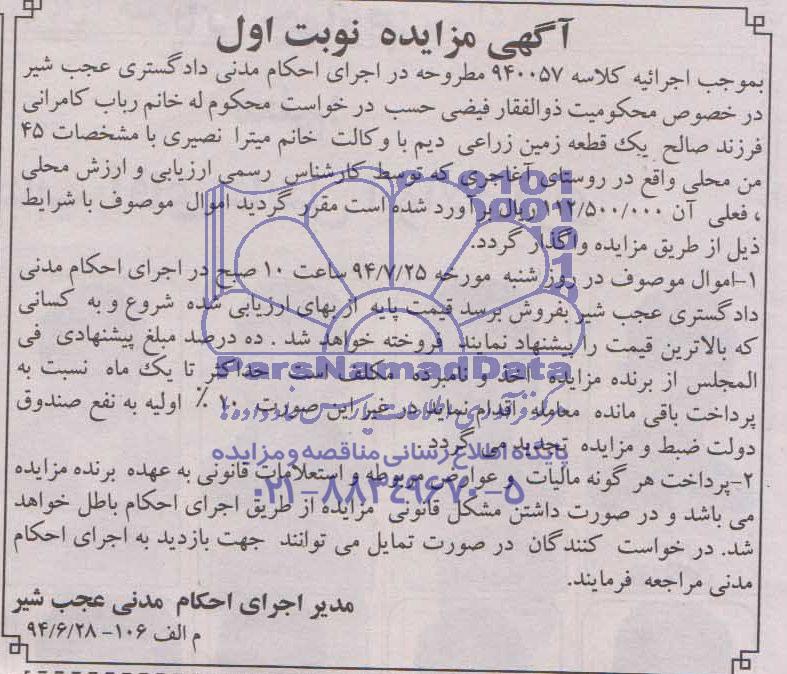 آگهی مزایده نوبت اول
بموجب اجرائیه کلاسه ۹۴۰۰۵۷ مطروحه در اجرای احکام مدنی دادگستری عجب شیر
در خصوص محکومیت ذوالفقار فیضی حسب در خواست محکوم له خانم رباب کامرانی
فرزند صالح یک قطعه زمین زراعی دیم با وکالت خانم میترا نصیری با مشخصات ۴۵
من محلی واقع در روستای آغاجری که توسط کارشناس رسمی ارزیابی و ارزش محلی
، فعلی آن ۱۹۲/۵۰۰/۰۰۰ ریال برآورد شده است مقرر گردید اموال موصوف با شرایط
ذیل از طریق مزایده واگذار گردد.
۱-اموال موصوف در روز شنبه مورخه ۹۴/۷/۲۵ ساعت ۱۰ صبح در اجرای احکام مدنی
دادگستری عجب شیر بفروش برسد قیمت پایه از بهای ارزیابی شده شروع و به کسانی
که بالاترین قیمت را پیشنهاد نمایند فروخته خواهد شد . ده درصد مبلغ پیشنهادی فی
المجلس از برنده مزایده اخذ و نامبرده مکلف است حداکثر تا یک ماه نسبت به
پرداخت باقی مانده معامله اقدام نماید در غیر این صورت ۱۰٪ اولیه به نفع صندوق
دولت ضبط و مزایده تجدید می گردد
۲-پرداخت هر گونه مالیات و عوارض مربوطه و استعلامات قانونی به عهده برنده مزایده
می باشد و در صورت داشتن مشکل قانونی مزایده از طریق اجرای احکام باطل خواهد
شد. در خواست کنندگان در صورت تمایل می توانند جهت بازدید به اجرای احکام
مدنی مراجعه فرمایند.
مدیر اجرای احکام مدنی عجب شیر
م الف ۱۰۶- ۹۴/۶/۲۸
ParsNamadData
پایگاه اطلاع رسانی مناقصه و مزایده
۰۲۱-۸۸۳۴۹۶۷۰-۵